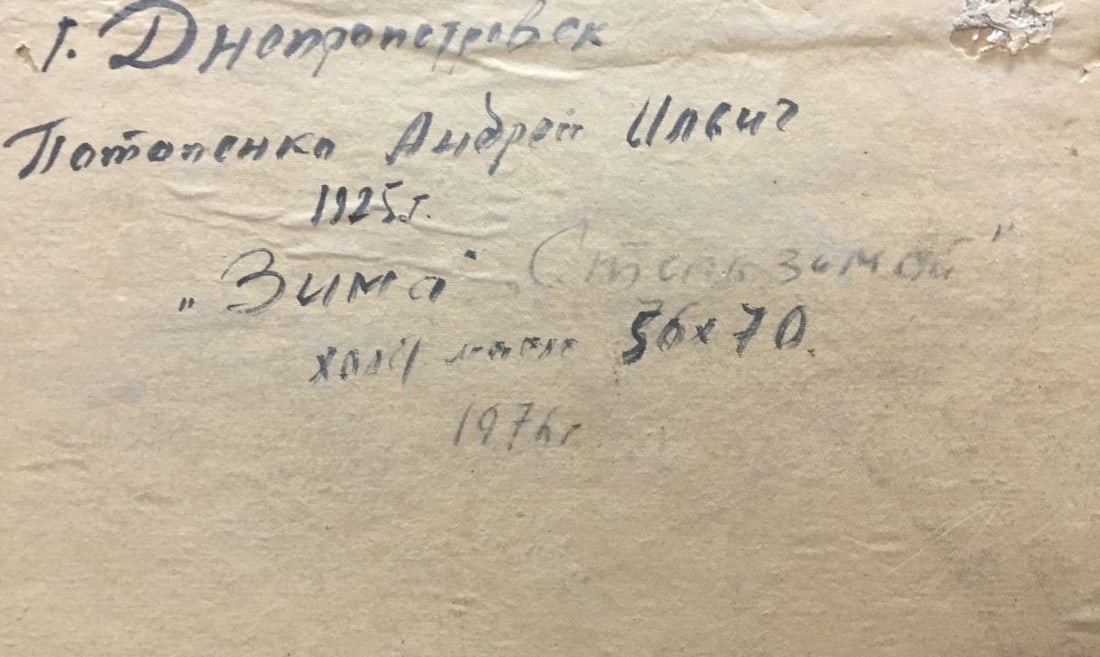 г. Днепропетровск
Потопенко Андрей Илвич
1925г.
„Зима"
зимой"
холст масло 56х70.
197